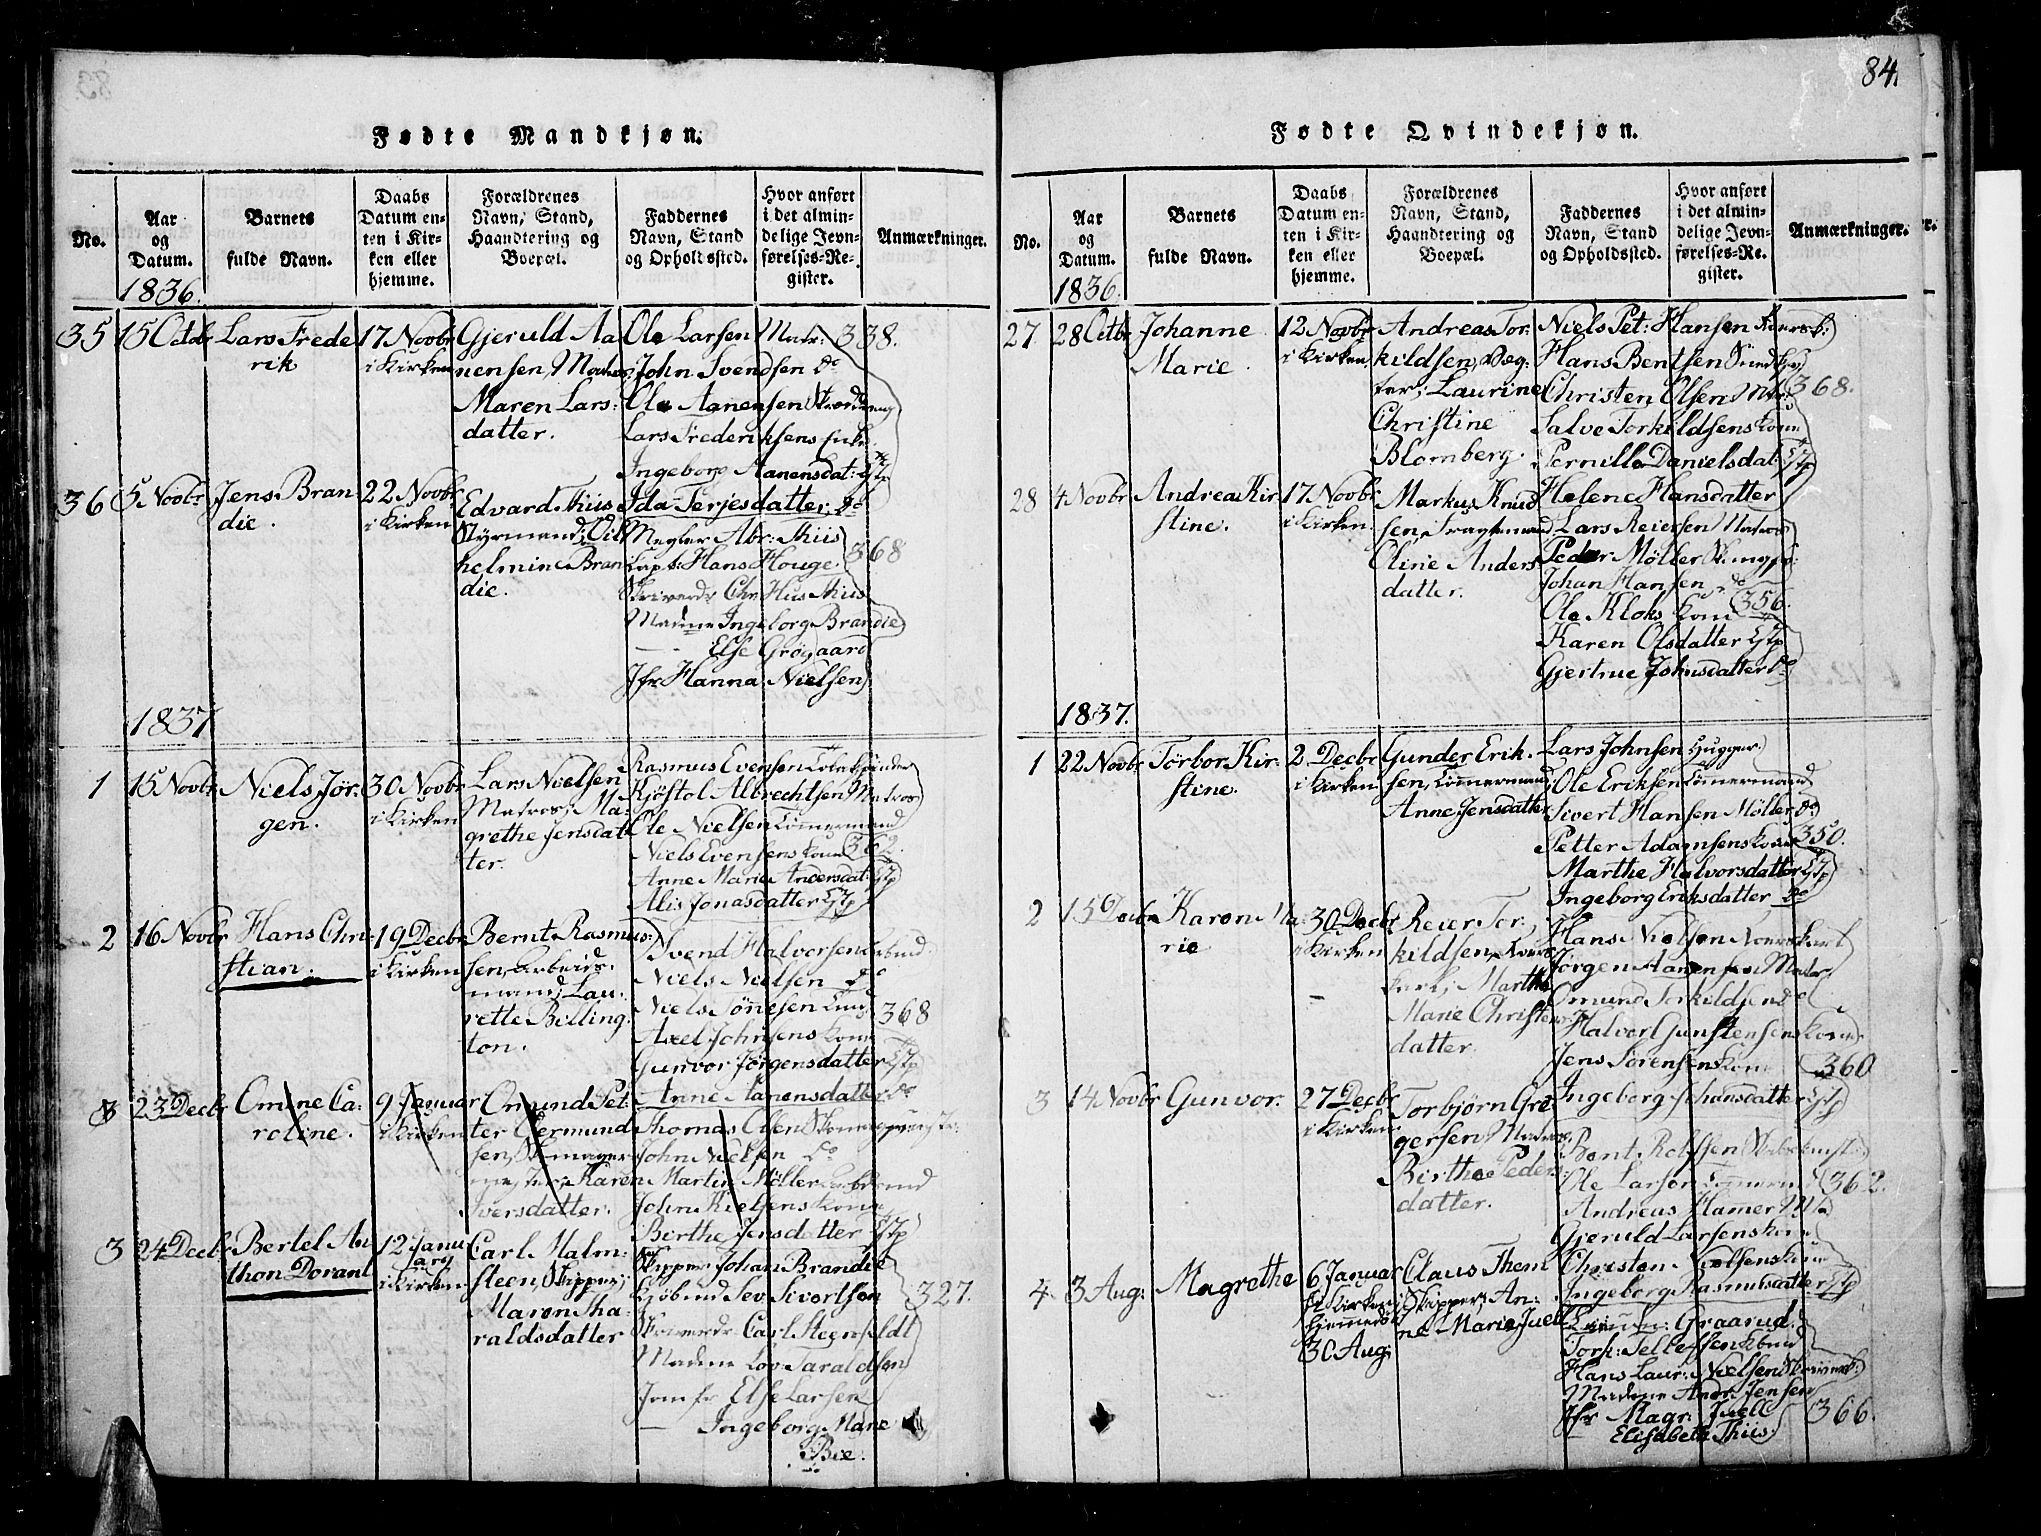 84.
Fødte Mandkjøn.
No.
Aar
og
Datum.
Barnets
fulde Navn.
Daabs
Datum en-
ten i Kir-
ken eller
hjemme.
Forældrenes
Navn, Stand,
Haandtering og
Boepæl.
Faddernes
Navn, Stand
og Opholdssted.
Hvor anført
i det almin-
delige Jevn-
førelses-Re-
gister.
Anmærkninger.
1836.
35
15 Octobr
Lars Frede
rik
17 Novbr
i Kirken
Gjeruld Aa
nensen, Matros
Maren Lars-
datter.
Ole Larsen Matr:
John Svendsen do
Ole Aanensen
Lars Frederiksens Enke
Ingeborg Aanensdat:
338.
36
5 Novbr
Jens Bran
die.
22 Novbr
i Kirken
Edvard Thiis
Styrmand, Vil
helmine Bran
die.
Ida Terjesdatter do
Megler Abr: Thiis
Capt: Hans Houge.
Chr Hus Thiis
Madme Ingeborg Brandie
— Else Grøgaard
Jfr Hanna Nielsen
368
1837
1
15 Novbr
Niels Jør-
gen.
30 Novbr
i Kirken
Lars Nielsen
Matros, Ma-
grethe Jensdat
ter.
Rasmus Evensen
Kjøstol Albrechtsen Matros
Ole Nielsen Tömermand
Niels Evensens Kone
Anne Marie Andersdat:
Alis Jonasdatter
362.
2
16 Novbr
Hans Chri-
stian.
19 Decbr
i Kirken
Bernt Rasmus-
sen, Arbeids-
mand, Lau-
rette Billing-
ton.
Svend Halvorsen
Niels Nielsen do
Niels Tönesen
Axel Johnsens Kone
Gunvor Jørgensdatter
Anne Aanensdatter do
368
3
23 Decbr
Omine Ca-
roline.
9 Januar
i Kirken
Omund Pet-
ter Germund
sen, Skomager
mester, Karen
Iversdatter.
Thomas Olsen
John Nielsen do
Martin Möller
John Nielsens Kone
Birthe Jensdatter
3
24 Decbr
Bertel An
thon Dorant
12 Janu
ary
i Kirken
Carl Malm-
steen, Skipper,
Maren Tha-
raldsdatter
Skipper Johan Brandie
Sev Sivertsen
Carl Steenfeldt
Madme Lov: Taraldsen
Jomfr Else Larsen
— Ingeborg Marie
Bie.
327.
Fødte Qvindekjøn.
No.
Aar
og
Datum.
Barnets
fulde Navn.
Daabs
Datum en-
ten i Kir-
ken eller
hjemme.
Forældrenes
Navn, Stand,
Haandtering og
Boepæl.
Faddernes
Navn, Stand
og Opholdssted.
Hvor anført
i det almin-
delige Jevn-
førelses-Re-
gister.
Anmærkninger.
1836.
27.
28 Octbr
Johanne
Marie.
12 Novbr
i Kirken
Andreas Tor-
kildsen, Væg-
ter, Laurine
Christine
Blomberg.
Niels Pet: Hansen
Hans Bentsen
Christen Olsen Matr:
Salve Torkildsens Kone
Pernille Danielsdat:
368.
28
4 Novbr
Andrea Kir
stine.
17 Novbr
i Kirken.
Markus Knud
sen, Dragtemand
Oline Anders
datter.
Helene Hansdatter
Lars Reiersen Matros
Peder Møller
Johan Hansen do
Ole Kloks Kone
Karen Olsdatter
Gjertrue Johnsdatter do
356.
1837.
1
22 Novbr
Törbor Kir-
stine.
2 Decbr
i Kirken
Gunder Erik-
sen, Tömermand,
Anne Jensdatter
Lars Johnsen Hugger
Ole Eriksen Tömermand
Sivert Hansen Möller do
Petter Adamsens Kone
Marthe Halvorsdatter
Ingeborg Eriksdatter do
350.
2
15 Decbr
Karen Ma-
rie
30 Decbr
i Kirken
Reier Tor-
kildsen,
Marthe
Marie Christens
datter.
Hans Nielsen
Jörgen Aanensen Matr
Omund Torkildsen do
Halvor Gunstensens Kone
Jens Sörensens Kone
Ingeborg Johansdatter
360
3
14 Novbr
Gunvor.
27 Decbr
i Kirken
Torbjörn Gre
gersen, Matros,
Birthe Peders-
datter.
Bent Rolfsen
Ole Larsen Tömermand
Andreas Hamer
Gjeruld Larsens Kone
Christen Nielsens Kone
Ingeborg Rasmusdatter
362.
4
3 Aug:
Magrethe
6 Januar
i Kirken,
hjemme
30 Aug
Claus Them
Skipper, An-
ne Marie Juell
Graarud.
Tork: Tellefsen
Hans Laur: Nielsen
Madme Andr: Jensen
Jfr Magr: Juell
Elisabeth Thiis.
366.